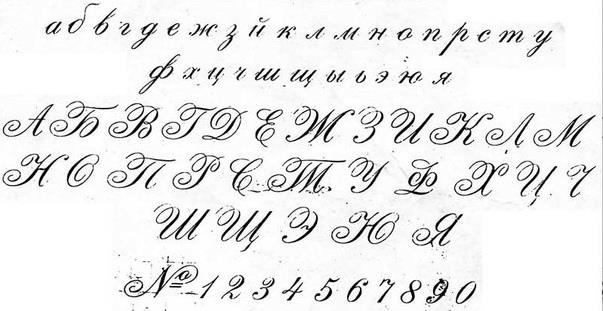 а б в г д е ж з й к л м н о п р с т у
ф х ц ч ш щ ы ь э ю я
А Б В Г Д Е Ж З И К Л М
Н О П Р С Т У Ф Х Ц Ч
Ш Щ Э Ю Я
№ 1 2 3 4 5 6 7 8 9 0